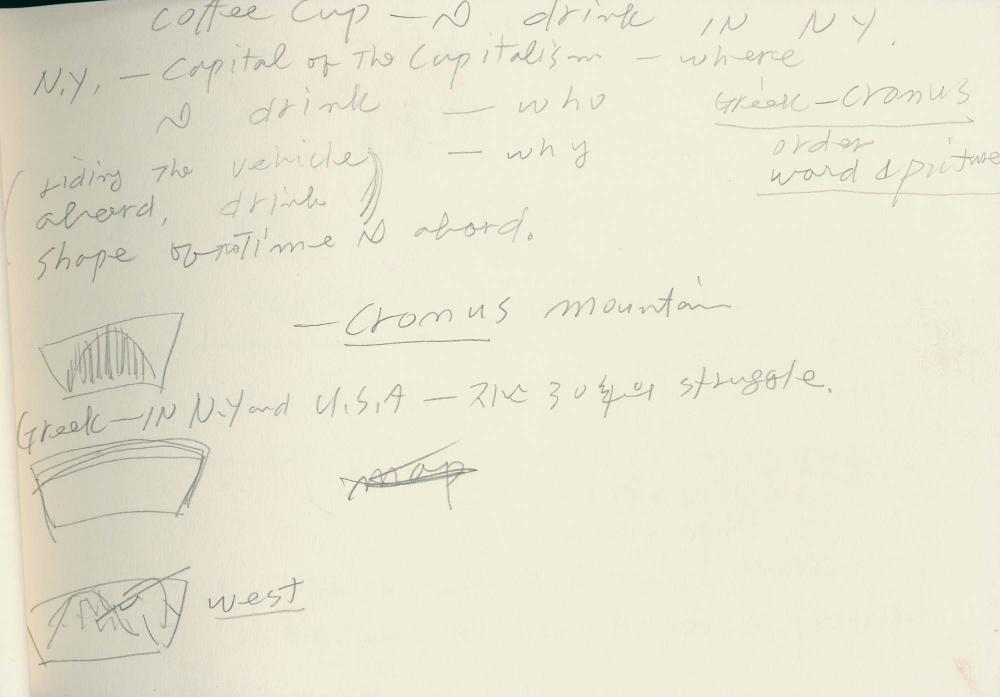 Coffee Cup — drink IN N Y.
N.Y. — Capital of The Capitalism — where
drink — who
Greek — Cronus
riding The vehicle — why
order
word & picture
aboard, drink
shape of Time aboard.
— Cronus mountain
Greek — IN N.Y and U.S.A — 지난 30 struggle.
map
west